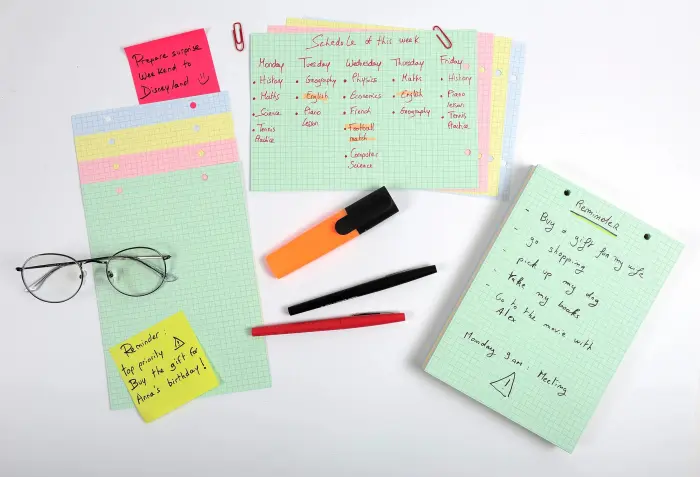 Prepare surprise
Weekend to
Disneyland
Schedule of this week
Monday
• History
• Maths
• Science
• Tennis
Practice
Tuesday
• Geography
• English
• Piano
lesson
Wednesday
• Physics
• Economics
• French
• Football
match
• Computer
Science
Thursday
• Maths
• English
• Geography
Friday
• History
• Piano
lesson
• Tennis
Practice
Reminder:
top priority
Buy the gift for
Anna's birthday!
Reminder
- Buy a gift for my wife
- go shopping
- pick up my dog
- take my books
- Go to the movie with
Alex
Monday 9am: Meeting